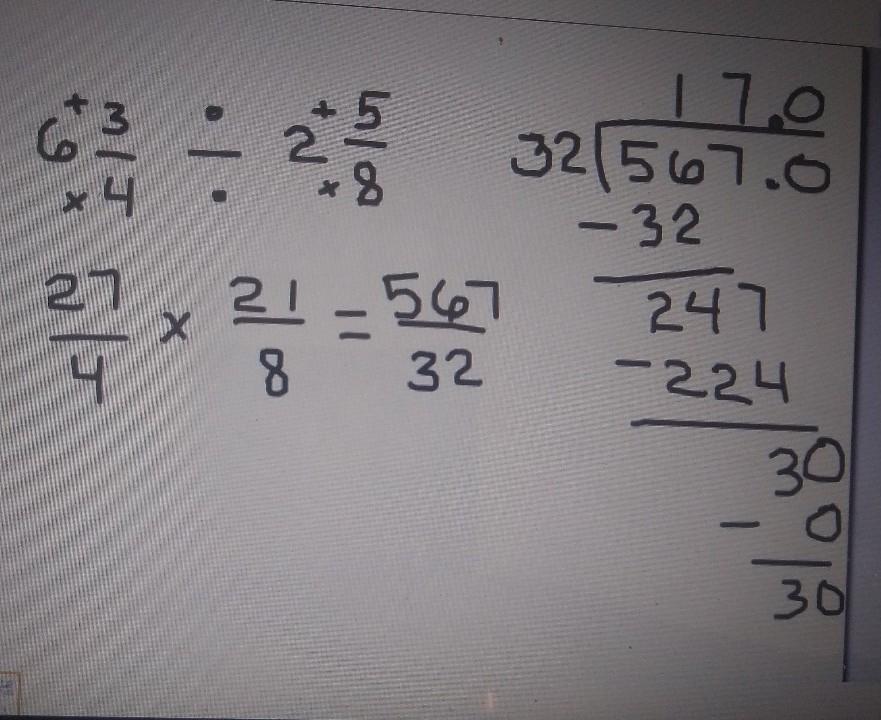 6 + 3/4 ÷ 2 + 5/8
× ×
27/4 × 21/8 = 567/32
17.0
32 567.0
- 32
247
- 224
30
- 0
30